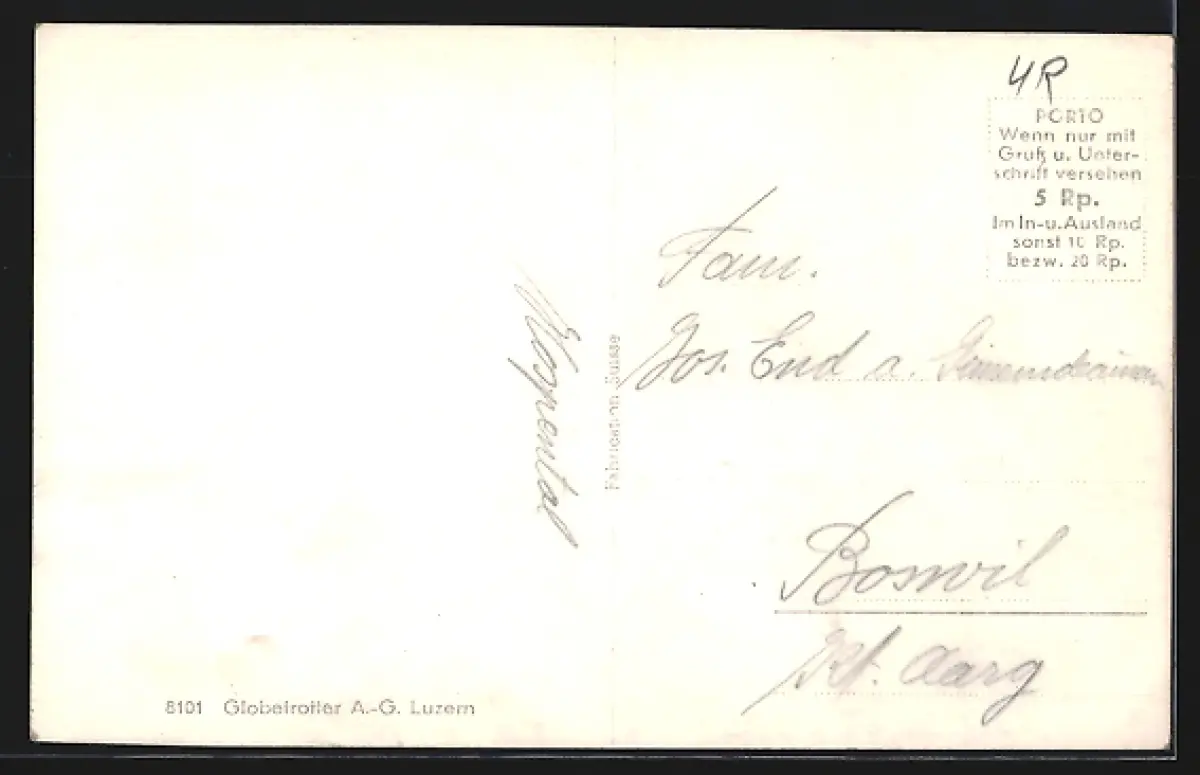 4R
PORTO
Wenn nur mit
Gruß u. Unter-
schrift versehen
5 Rp.
Im In-u. Ausland
sonst 10 Rp.
bezw. 20 Rp.
Fam.
Jos. End a.
Boswil
Kt. Aarg
Hospental
Fabrication Suisse
8101 Globetrotter A.-G. Luzern